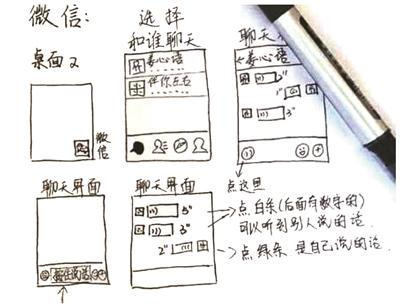 微信:
桌面2
微信
选择
和谁聊天
姜心语
伴你左右
聊天
←姜心语
2"
1"
3"
点这里
聊天界面
按住说话
聊天界面
5"
3"
2"
点白条(后面有数字的)
可以听到别人说的话.
点绿条 是自己说的话.